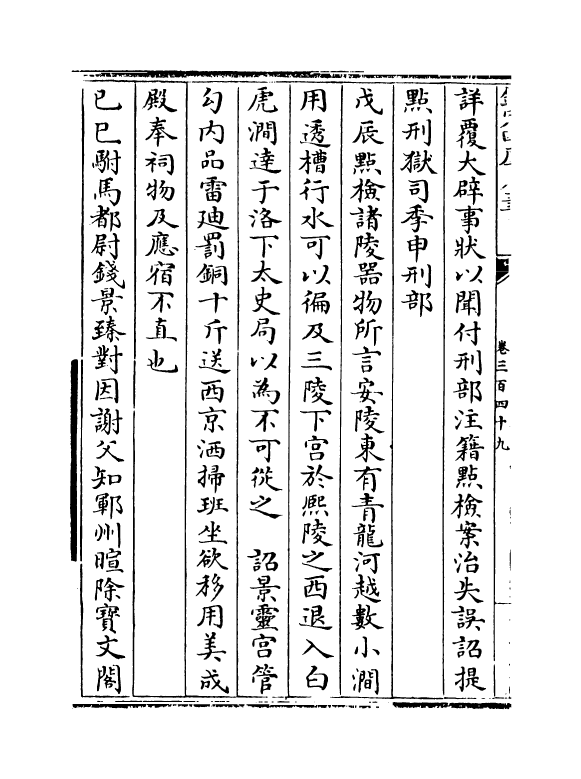 卷三百四十九
詳覆大辟事狀以聞付刑部注籍點檢案治失誤詔提
點刑獄司季申刑部
戊辰點檢諸陵器物所言安陵東有青龍河越數小澗
用透槽行水可以徧及三陵下宫於熙陵之西退入白
虎澗達于洛下太史局以為不可從之　詔景靈宫管
勾内品雷廸罰銅十斤送西京洒掃班坐欲移用美成
殿奉祠物及應宿不直也
已巳駙馬都尉錢景臻對因謝父知鄆州暄除寳文閣